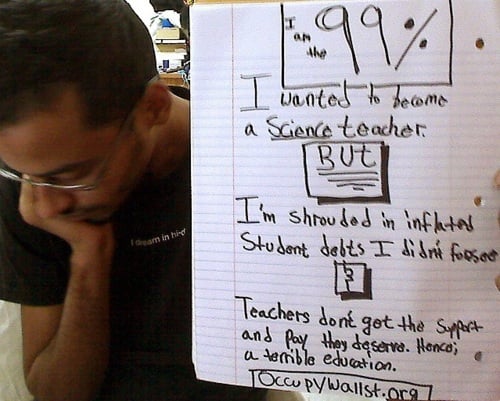 I am the 99%
I wanted to become
a Science teacher.
BUT
I'm shrouded in inflated
Student debts I didn't foresee
&
Teachers don't get the support
and pay they deserve. Hence;
a terrible education.
OccupyWallst.org
I dream in